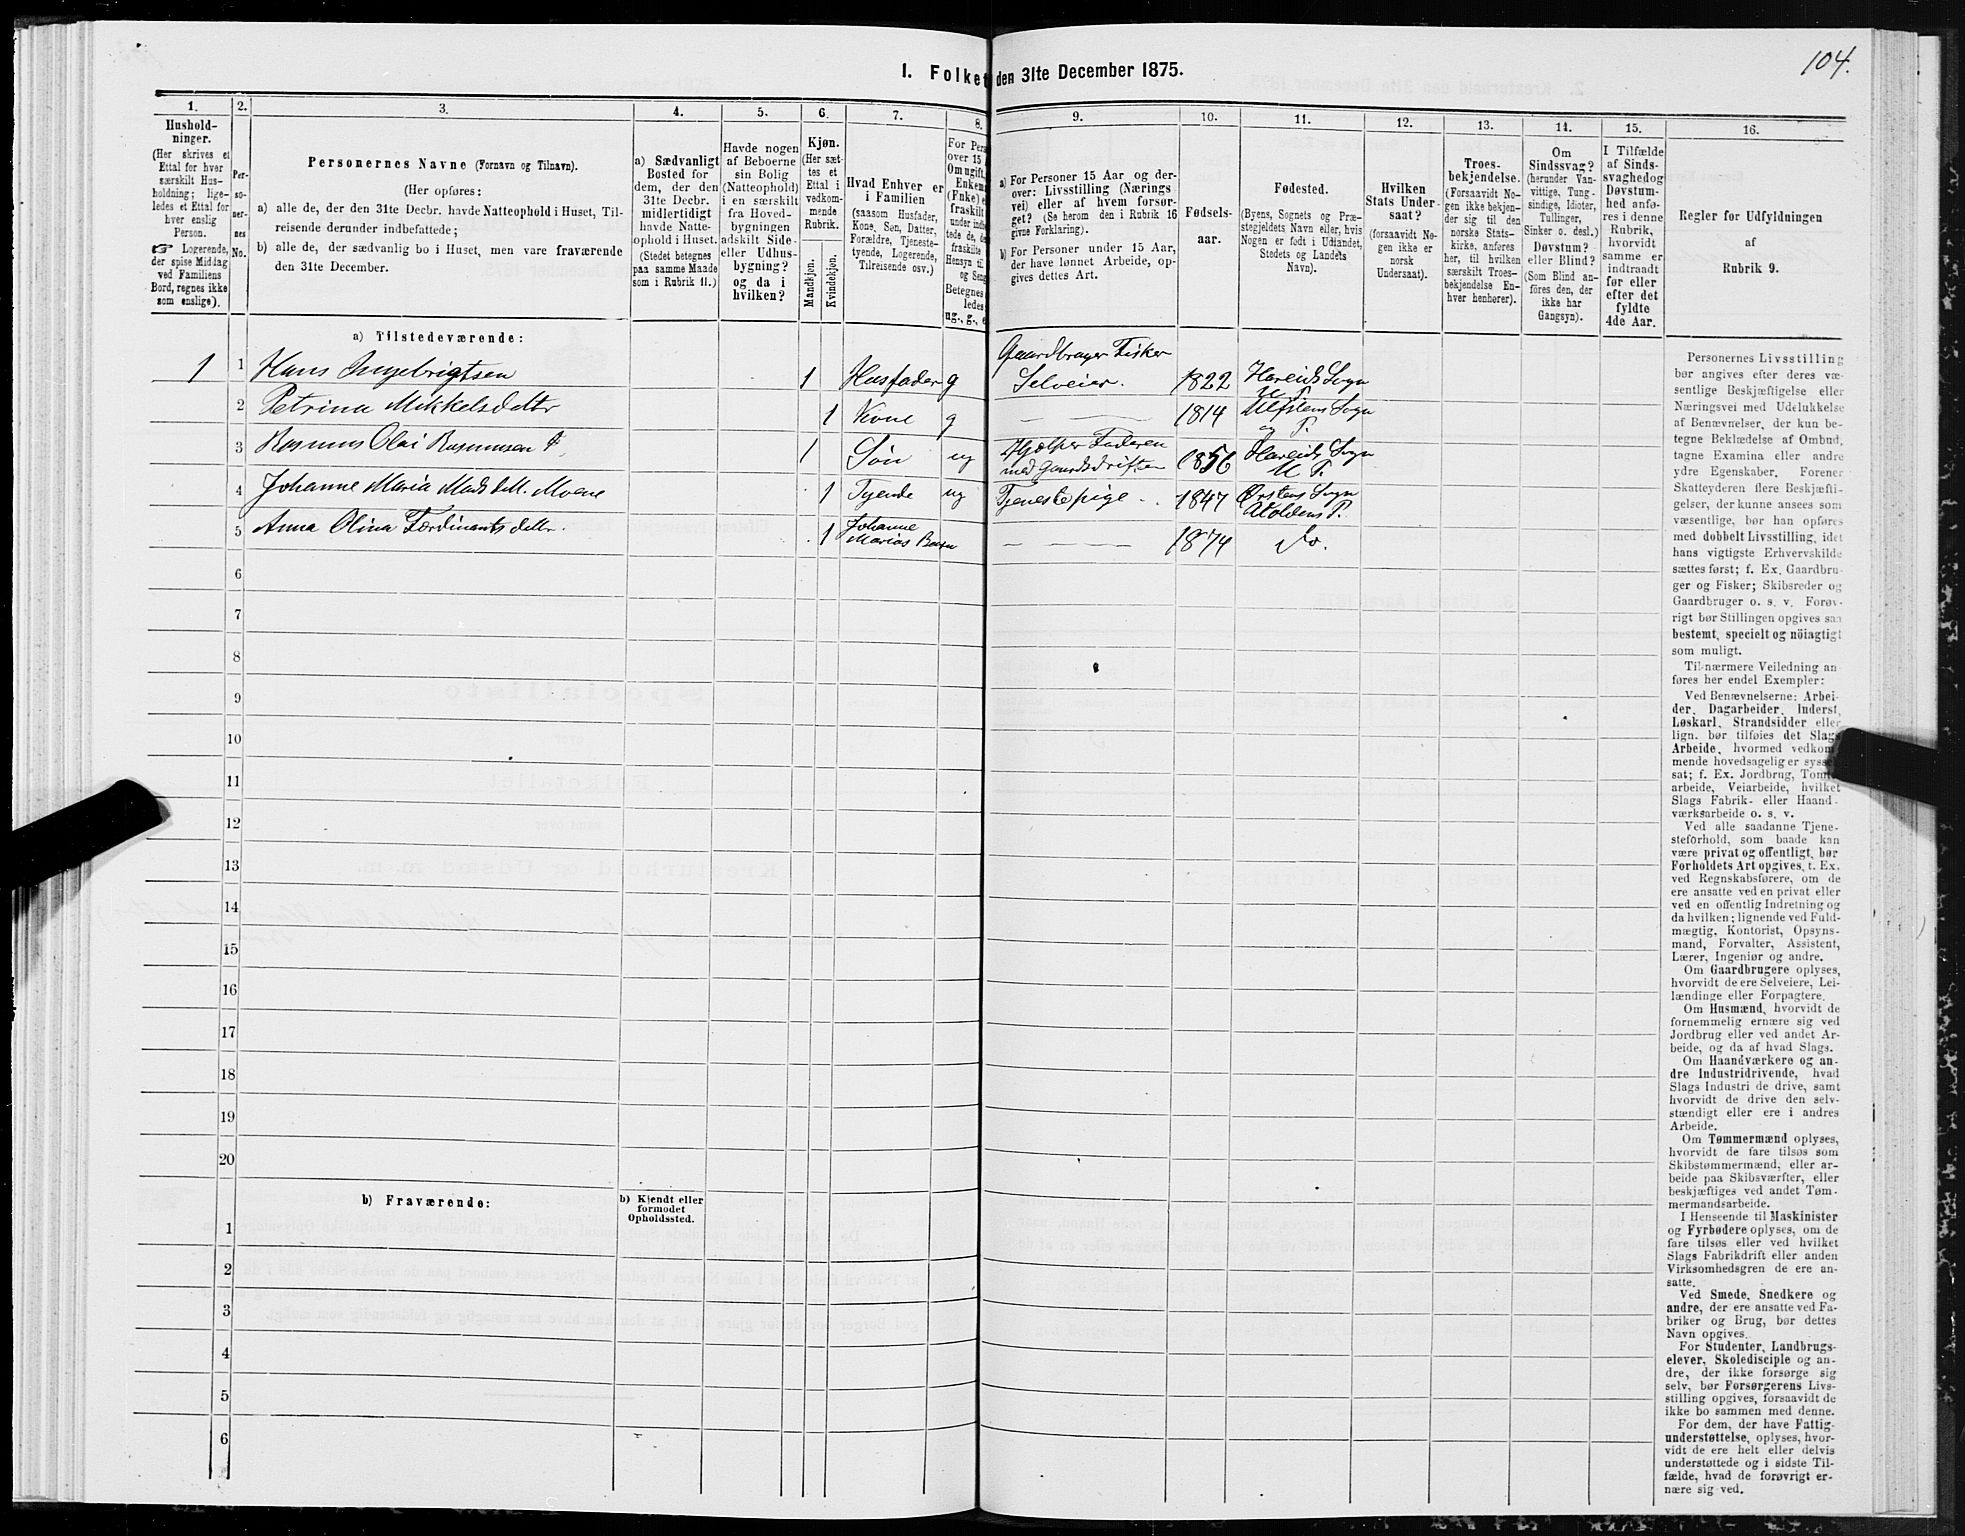 104.
I. Folket den 31te December 1875.
1. 2. 3. 4. 5. 6. 7. 8. 9. 10. 11. 12. 13. 14. 15. 16.
Hushold-
ninger.
(Her skrives et
Ettal for hver
særskilt Hus-
holdning; lige-
ledes et Ettal for
hver enslig
Person.
☞ Logerende,
der spise Middag
ved Familiens
Bord, regnes ikke
som enslige).
Per-
so-
ner-
nes
No.
Personernes Navne (Fornavn og Tilnavn).
(Her opføres:
a) alle de, der den 31te Decbr. havde Natteophold i Huset, Til-
reisende derunder indbefattede;
b) alle de, der sædvanlig bo i Huset, men vare fraværende
den 31te December.
a) Sædvanligt
Bosted for
dem, der den
31te Decbr.
midlertidigt
havde Natte-
ophold i Huset.
(Stedet betegnes
paa samme Maade
som i Rubrik 11.)
Havde nogen
af Beboerne
sin Bolig
(Natteophold)
i en særskilt
fra Hoved-
bygningen
adskilt Side-
eller Udhus-
bygning?
og da i
hvilken?
Kjøn.
(Her sæt-
tes et
Ettal i
vedkom-
mende
Rubrik.
Mandkjøn.
Kvindekjøn.
Hvad Enhver er
i Familien
(saasom Husfader,
Kone, Søn, Datter,
Forældre, Tjeneste-
tyende, Logerende,
Tilreisende osv.)
For Pers
over 15
Om ugift,
Enkem
(Enke) e
fraskilt
under indb
tede de, d
fraskilte
Hensyn til
og Seng
Betegnes
ledes
ug., g., e
a) For Personer 15 Aar og der-
over: Livsstilling (Nærings
vei) eller af hvem forsør-
get? (Se herom den i Rubrik 16
givne Forklaring).
b) For Personer under 15 Aar,
der have lønnet Arbeide, op-
gives dettes Art.
Fødsels-
aar.
Fødested.
(Byens, Sognets og Præ-
stegjeldets Navn eller, hvis
Nogen er født i Udlandet,
Stedets og Landets
Navn).
Hvilken
Stats Under-
saat?
(forsaavidt No-
gen ikke er
norsk
Undersaat).
Troes-
bekjendelse.
(Forsaavidt No-
gen ikke bekjen-
der sig til den
norske Stats-
kirke, anføres
her, til hvilken
særskilt Troes-
bekjendelse En-
hver henhører).
Om
Sindssvag?
(herunder Van-
vittige, Tung-
sindige, Idioter,
Tullinger,
Sinker o. desl.)
Døvstum?
eller Blind?
(Som Blind an-
föres den, der
ikke har
Gangsyn).
I Tilfælde
af Sinds-
svaghed og
Døvstum-
hed anfø-
res i denne
Rubrik,
hvorvidt
samme er
indtraadt
før eller
efter det
fyldte
4de Aar.
Regler for Udfyldningen
af
Rubrik 9.
a) Tilstedeværende:
1 1 Hans Ingebrigtsen 1 Husfader g Gaardbruger Fisker
Selveier. 1822 Hareids Sogn
U. P.
2 Petrina Mikkelsdattr 1 Kone g — 1814 Ulfstens Sogn
og P.
3 Rasmus Olai Rasmussen 1 Søn ug Hjælper Faderen
med Gaardsdriften 1856 Hareids Sogn
U P.
4 Johanne Maria Moene 1 Tyende ug Tjenestepige. 1847 Ørstens Sogn
P.
5 Anna Olina Færdinants dattr. 1 Johanne
Marias Barn — 1874 do.
6
7
8
9
10
11
12
13
14
15
16
17
18
19
20
b) Fraværende:
b) Kjendt eller
formodet
Opholdssted.
1
2
3
4
5
6
Personernes Livsstilling
bør angives efter deres væ-
sentlige Beskjæftigelse eller
Næringsvei med Udelukkelse
af Benævnelser, der kun be-
tegne Beklædelse af Ombud,
tagne Examina eller andre
ydre Egenskaber. Forener
Skatteyderen flere Beskjæfti-
gelser, der kunne ansees som
væsentlige, bør han opføres
med dobbelt Livsstilling, idet
hans vigtigste Erhvervskilde
sættes først; f. Ex. Gaardbru-
ger og Fisker; Skibsreder og
Gaardbruger o. s. v. Forøv-
rigt bør Stillingen opgives saa
bestemt, specielt og nöiagtigt
som muligt.
Til nærmere Veiledning an-
føres her endel Exempler:
Ved Benævnelserne: Arbei-
der, Dagarbeider, Inderst,
Løskarl, Strandsidder eller
lign. bør tilføies det Slags
Arbeide, hvormed vedkom-
mende hovedsagelig er syssel-
sat; f. Ex. Jordbrug, Tomte-
arbeide, Veiarbeide, hvilket
Slags Fabrik- eller Haand-
værksarbeide o. s. v.
Ved alle saadanne Tjene-
steforhold, som baade kan
være privat og offentligt, bør
Forholdets Art opgives, t. Ex.
ved Regnskabsførere, om de
ere ansatte ved en privat eller
ved en offentlig Indretning og
da hvilken; lignende ved Fuld-
mægtig, Kontorist, Opsyns-
mand, Forvalter, Assistent,
Lærer, Ingeniør og andre.
Om Gaardbrugere oplyses,
hvorvidt de ere Selveiere, Lei-
lændinge eller Forpagtere.
Om Husmænd, hvorvidt de
fornemmelig ernære sig ved
Jordbrug eller ved andet Ar-
beide, og da af hvad Slags.
Om Haandværkere og an-
dre Industridrivende, hvad
Slags Industri de drive, samt
hvorvidt de drive den selv-
stændigt eller ere i andres
Arbeide.
Om Tømmermænd oplyses,
hvorvidt de fare tilsøs som
Skibstømmermænd, eller ar-
beide paa Skibsværfter, eller
beskjæftiges ved andet Tøm-
mermandsarbeide.
I Henseende til Maskinister
og Fyrbødere oplyses, om de
fare tilsøs eller ved hvilket
Slags Fabrikdrift eller anden
Virksomhedsgren de ere an-
satte.
Ved Smede, Snedkere og
andre, der ere ansatte ved Fa-
briker og Brug, bør dettes
Navn opgives.
For Studenter, Landbrugs-
elever, Skoledisciple og an-
dre, der ikke forsørge sig
selv, bør Forsørgerens Livs-
stilling opgives, forsaavidt de
ikke bo sammen med denne.
For dem, der have Fattig-
understøttelse, oplyses, hvor-
vidt de ere helt eller delvis
understøttede og i sidste Til-
fælde, hvad de forøvrigt er-
nære sig ved.